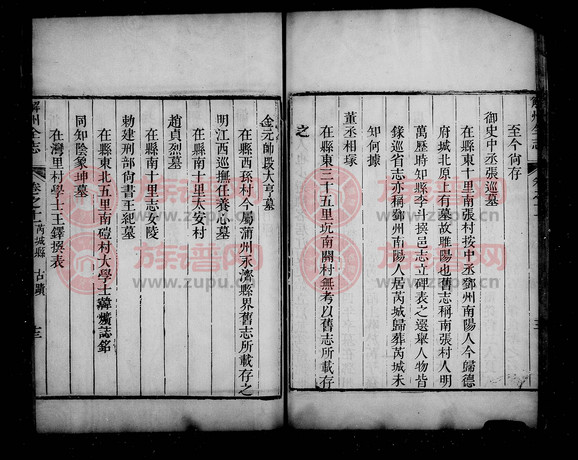 至今尙存
御史中丞張巡墓
在縣東十里南張村按中丞鄧州南陽人今歸德
府城北原上有墓故睢陽也舊志稱南張村人明
萬歷時知縣李 撰邑志立碑表之選舉人物皆
錄巡省志亦稱鄧州南陽人居芮城歸葬芮城未
知何據
董丞相塚
在縣東三十五里坑南關村無考以舊志所載存
之
解州全志 卷之十
金元帥段大亨墓
在縣西孫村今屬蒲州永濟縣界舊志所載存之
明江西巡撫任養心墓
在縣南十里太安村
趙貞烈墓
在縣南十里志女陵
勅建刑部尙書王紀墓
在縣東北五里南磑村大學士韓爌誌銘
同知陰象坤墓
在灣里村學士王鐸撰表
解州全志 卷之十 芮城縣 古蹟 十三
族譜网
www.zupu.cn